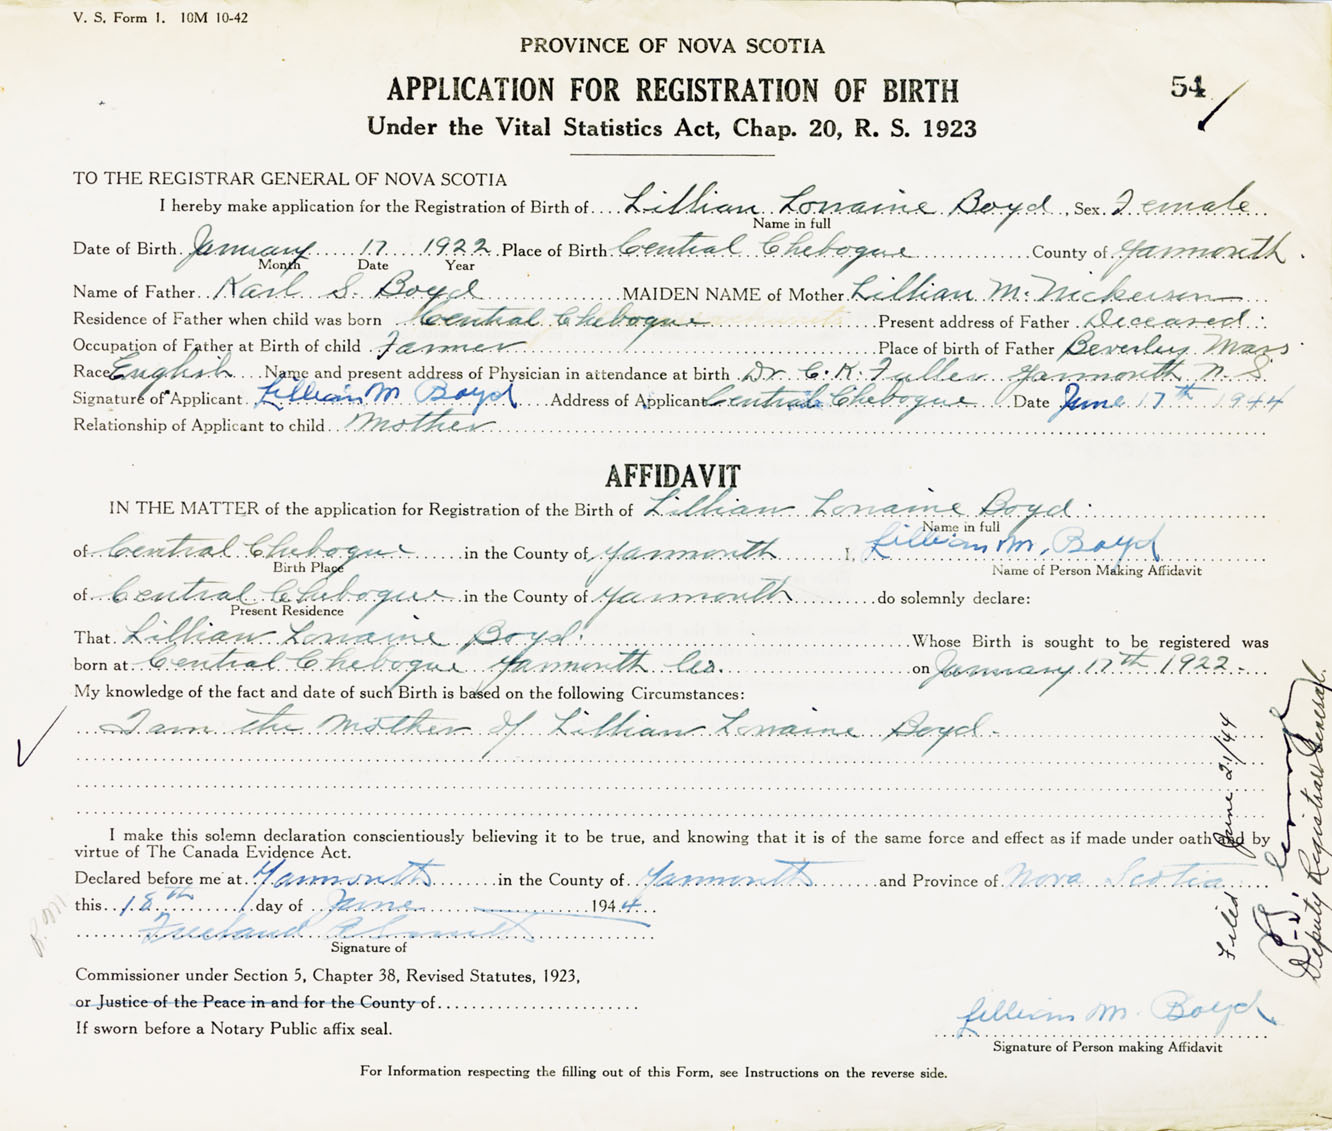 V. S. Form 1. 10M 10-42
PROVINCE OF NOVA SCOTIA
APPLICATION FOR REGISTRATION OF BIRTH
54
Under the Vital Statistics Act, Chap. 20, R. S. 1923
TO THE REGISTRAR GENERAL OF NOVA SCOTIA
I hereby make application for the Registration of Birth of Lillian Lorraine Boyd, Sex Female
Name in full
Date of Birth January 17 1922 Place of Birth Central Chebogue County of Yarmouth.
Month Date Year
Name of Father Karl S. Boyd MAIDEN NAME of Mother Lillian M. Nickerson
Residence of Father when child was born Central Chebogue Present address of Father Deceased
Occupation of Father at Birth of child Farmer Place of birth of Father Beverley Mass
Race English Name and present address of Physician in attendance at birth Dr. C. K. Fuller Yarmouth N. S.
Signature of Applicant Lillian M Boyd Address of Applicant Central Chebogue Date June 17th 1944
Relationship of Applicant to child Mother
AFFIDAVIT
IN THE MATTER of the application for Registration of the Birth of Lillian Lorraine Boyd
Name in full
of Central Chebogue in the County of Yarmouth I, Lillian M. Boyd
Birth Place Name of Person Making Affidavit
of Central Chebogue in the County of Yarmouth do solemnly declare:
Present Residence
That Lillian Lorraine Boyd Whose Birth is sought to be registered was
born at Central Chebogue Yarmouth Co. on January 17th 1922
My knowledge of the fact and date of such Birth is based on the following Circumstances:
I am the Mother of Lillian Lorraine Boyd
I make this solemn declaration conscientiously believing it to be true, and knowing that it is of the same force and effect as if made under oath and by
virtue of The Canada Evidence Act.
Declared before me at Yarmouth in the County of Yarmouth and Province of Nova Scotia
this 18th day of June 1944
Signature of
Commissioner under Section 5, Chapter 38, Revised Statutes, 1923,
or Justice of the Peace in and for the County of
If sworn before a Notary Public affix seal.
Lillian M. Boyd
Signature of Person making Affidavit
For Information respecting the filling out of this Form, see Instructions on the reverse side.
Filed June 21/44
Deputy Registrar General.